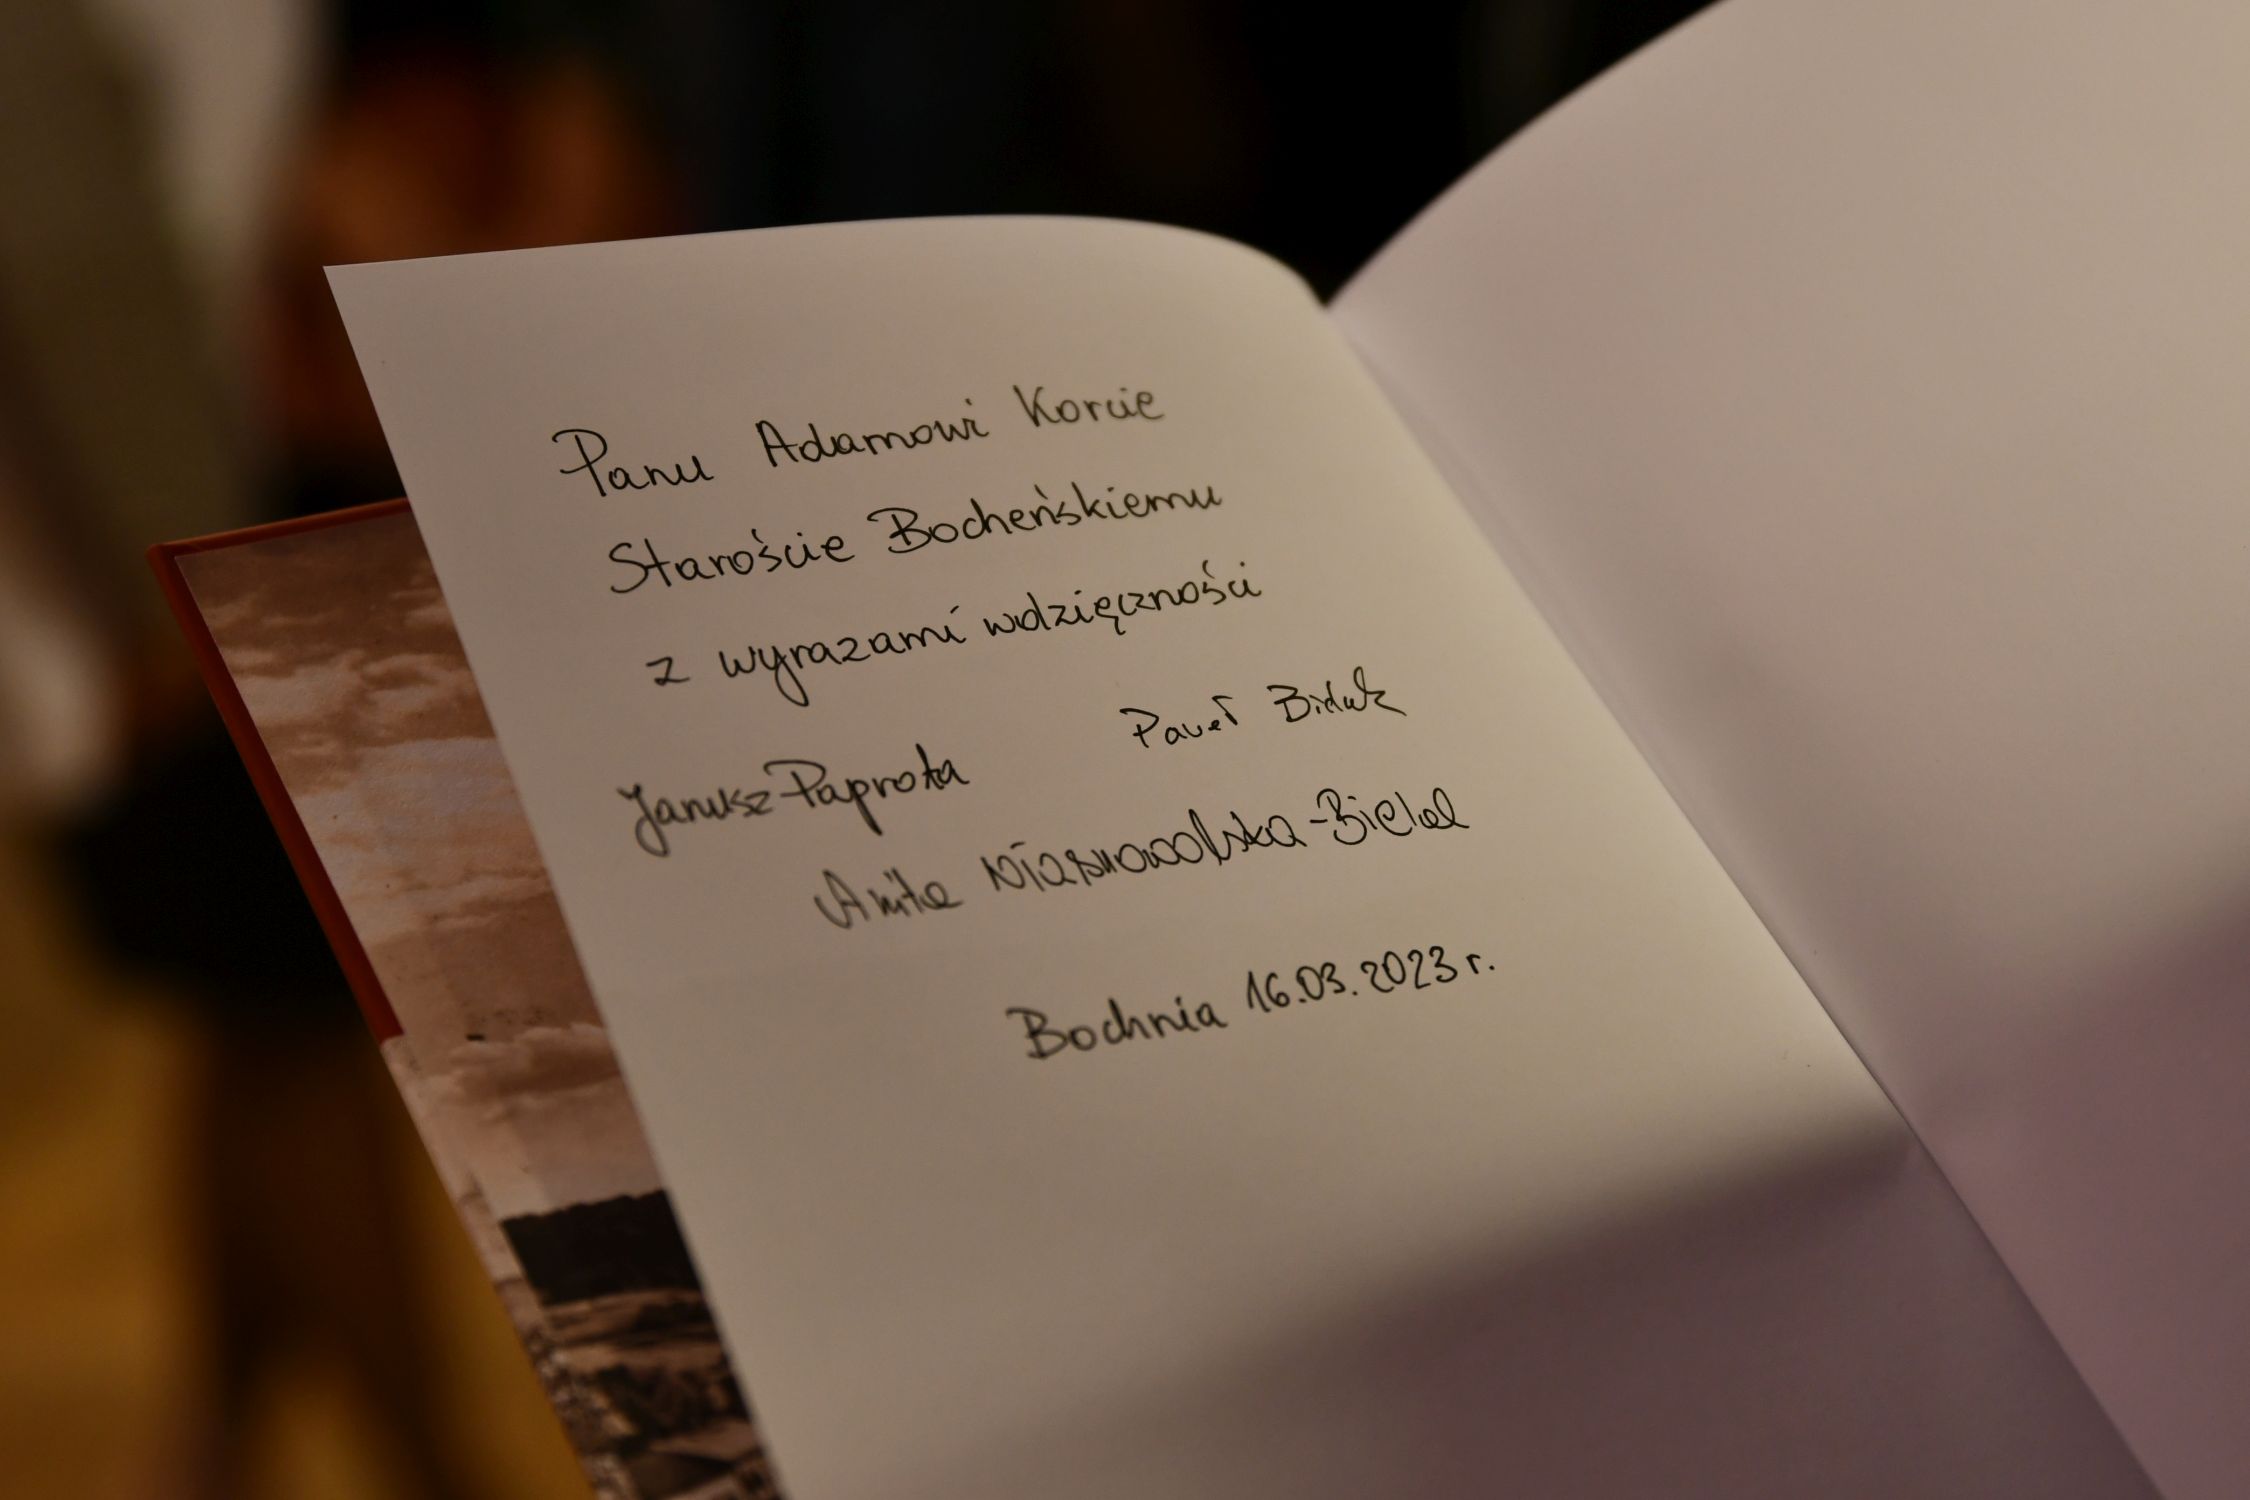 Panu Adamowi Korcie
Staroście Bocheńskiemu
z wyrazami wdzięczności
Paweł
Janusz Paprota
Anita
Bochnia 16.03.2023 r.